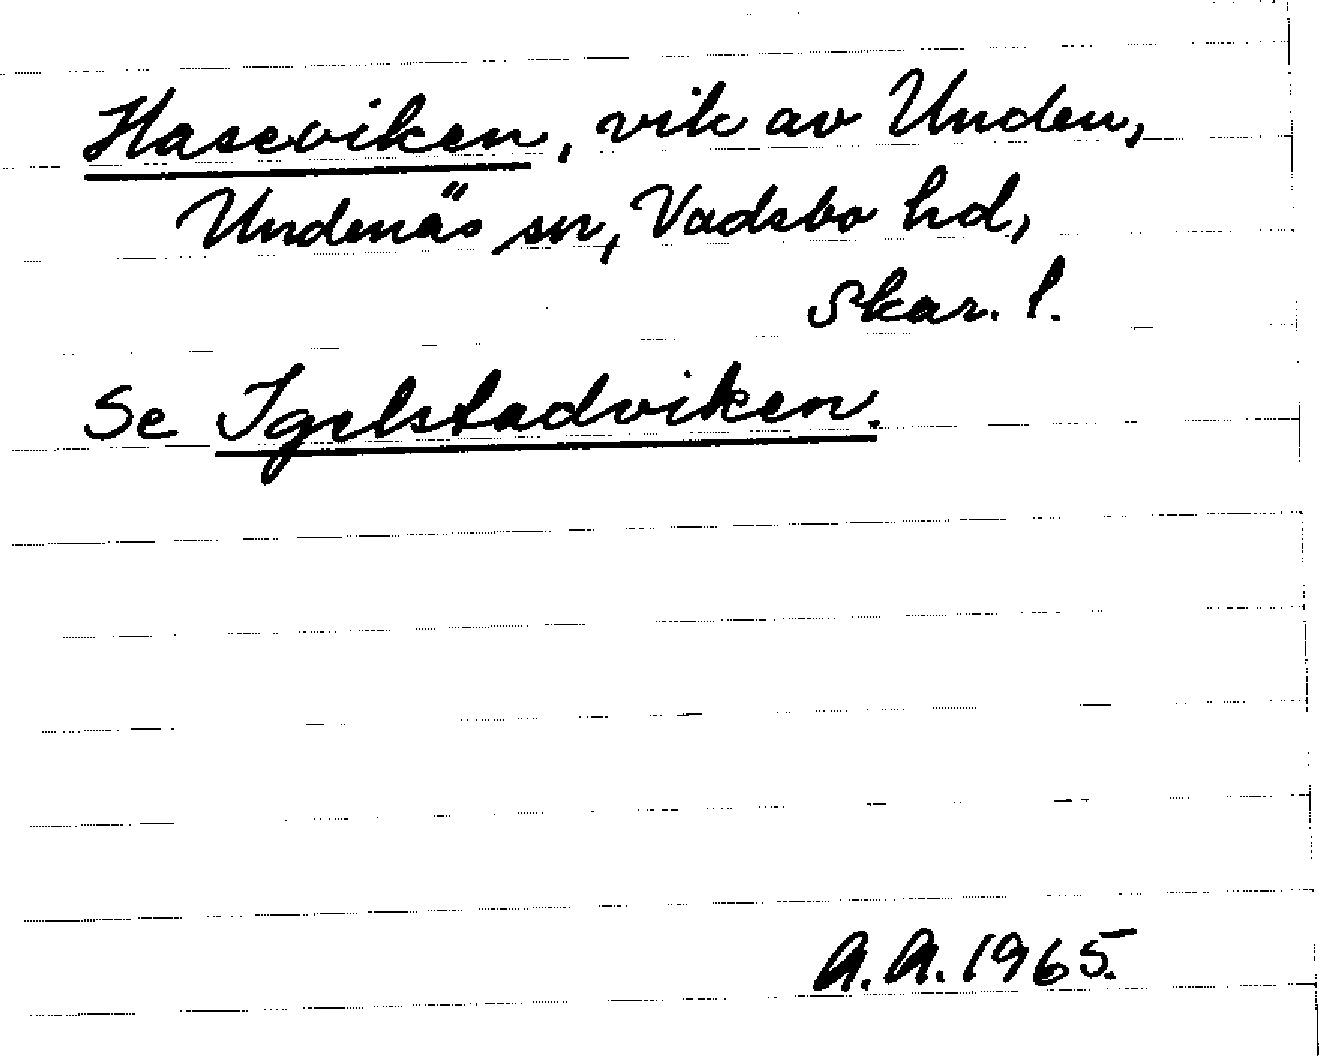 Haseviken, vik av Unden,
Undenäs sn, Vadsbo hd,
Skar. l.
Se Igelstadviken.
A.A. 1965.